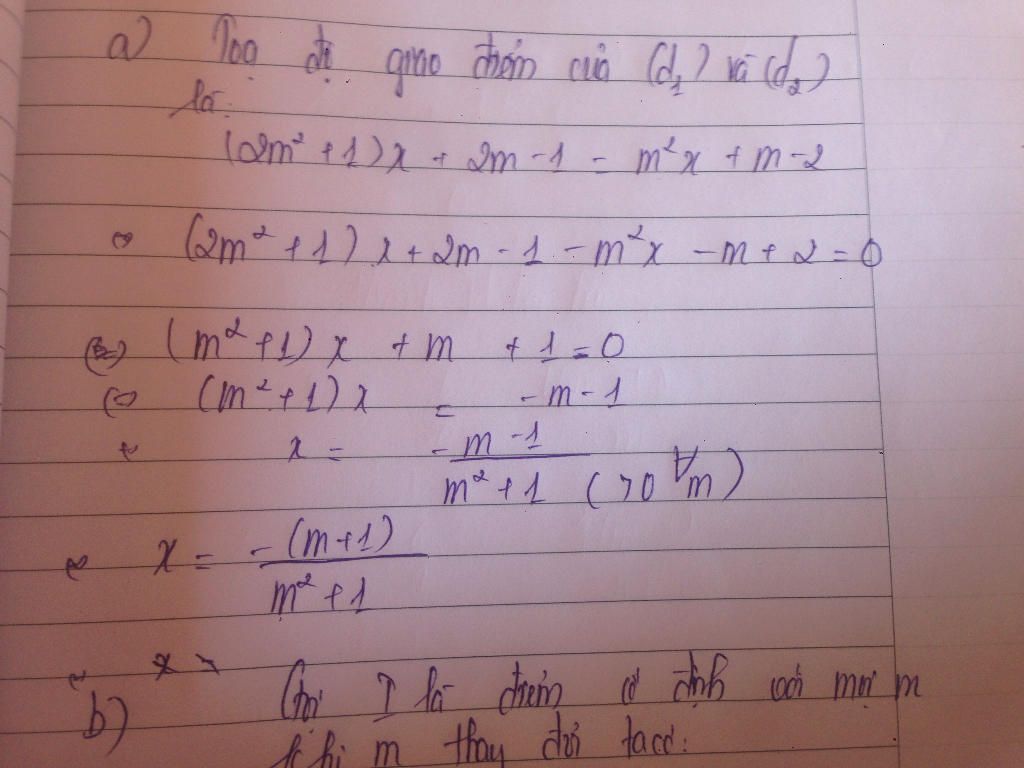 a) Toạ độ giao điểm của (d₁) và (d₂)
là:
(2m² + 1)x + 2m - 1 = m²x + m - 2
⇔ (2m² + 1)x + 2m - 1 - m²x - m + 2 = 0
⇔ (m² + 1)x + m + 1 = 0
⇔ (m² + 1)x = - m - 1
⇔ x = \frac{-m - 1}{m² + 1} (>0 ∀m)
⇔ x = \frac{-(m+1)}{m² + 1}
⇔ x
b) Gọi I là điểm cố định với mọi m
khi m thay đổi ta có: